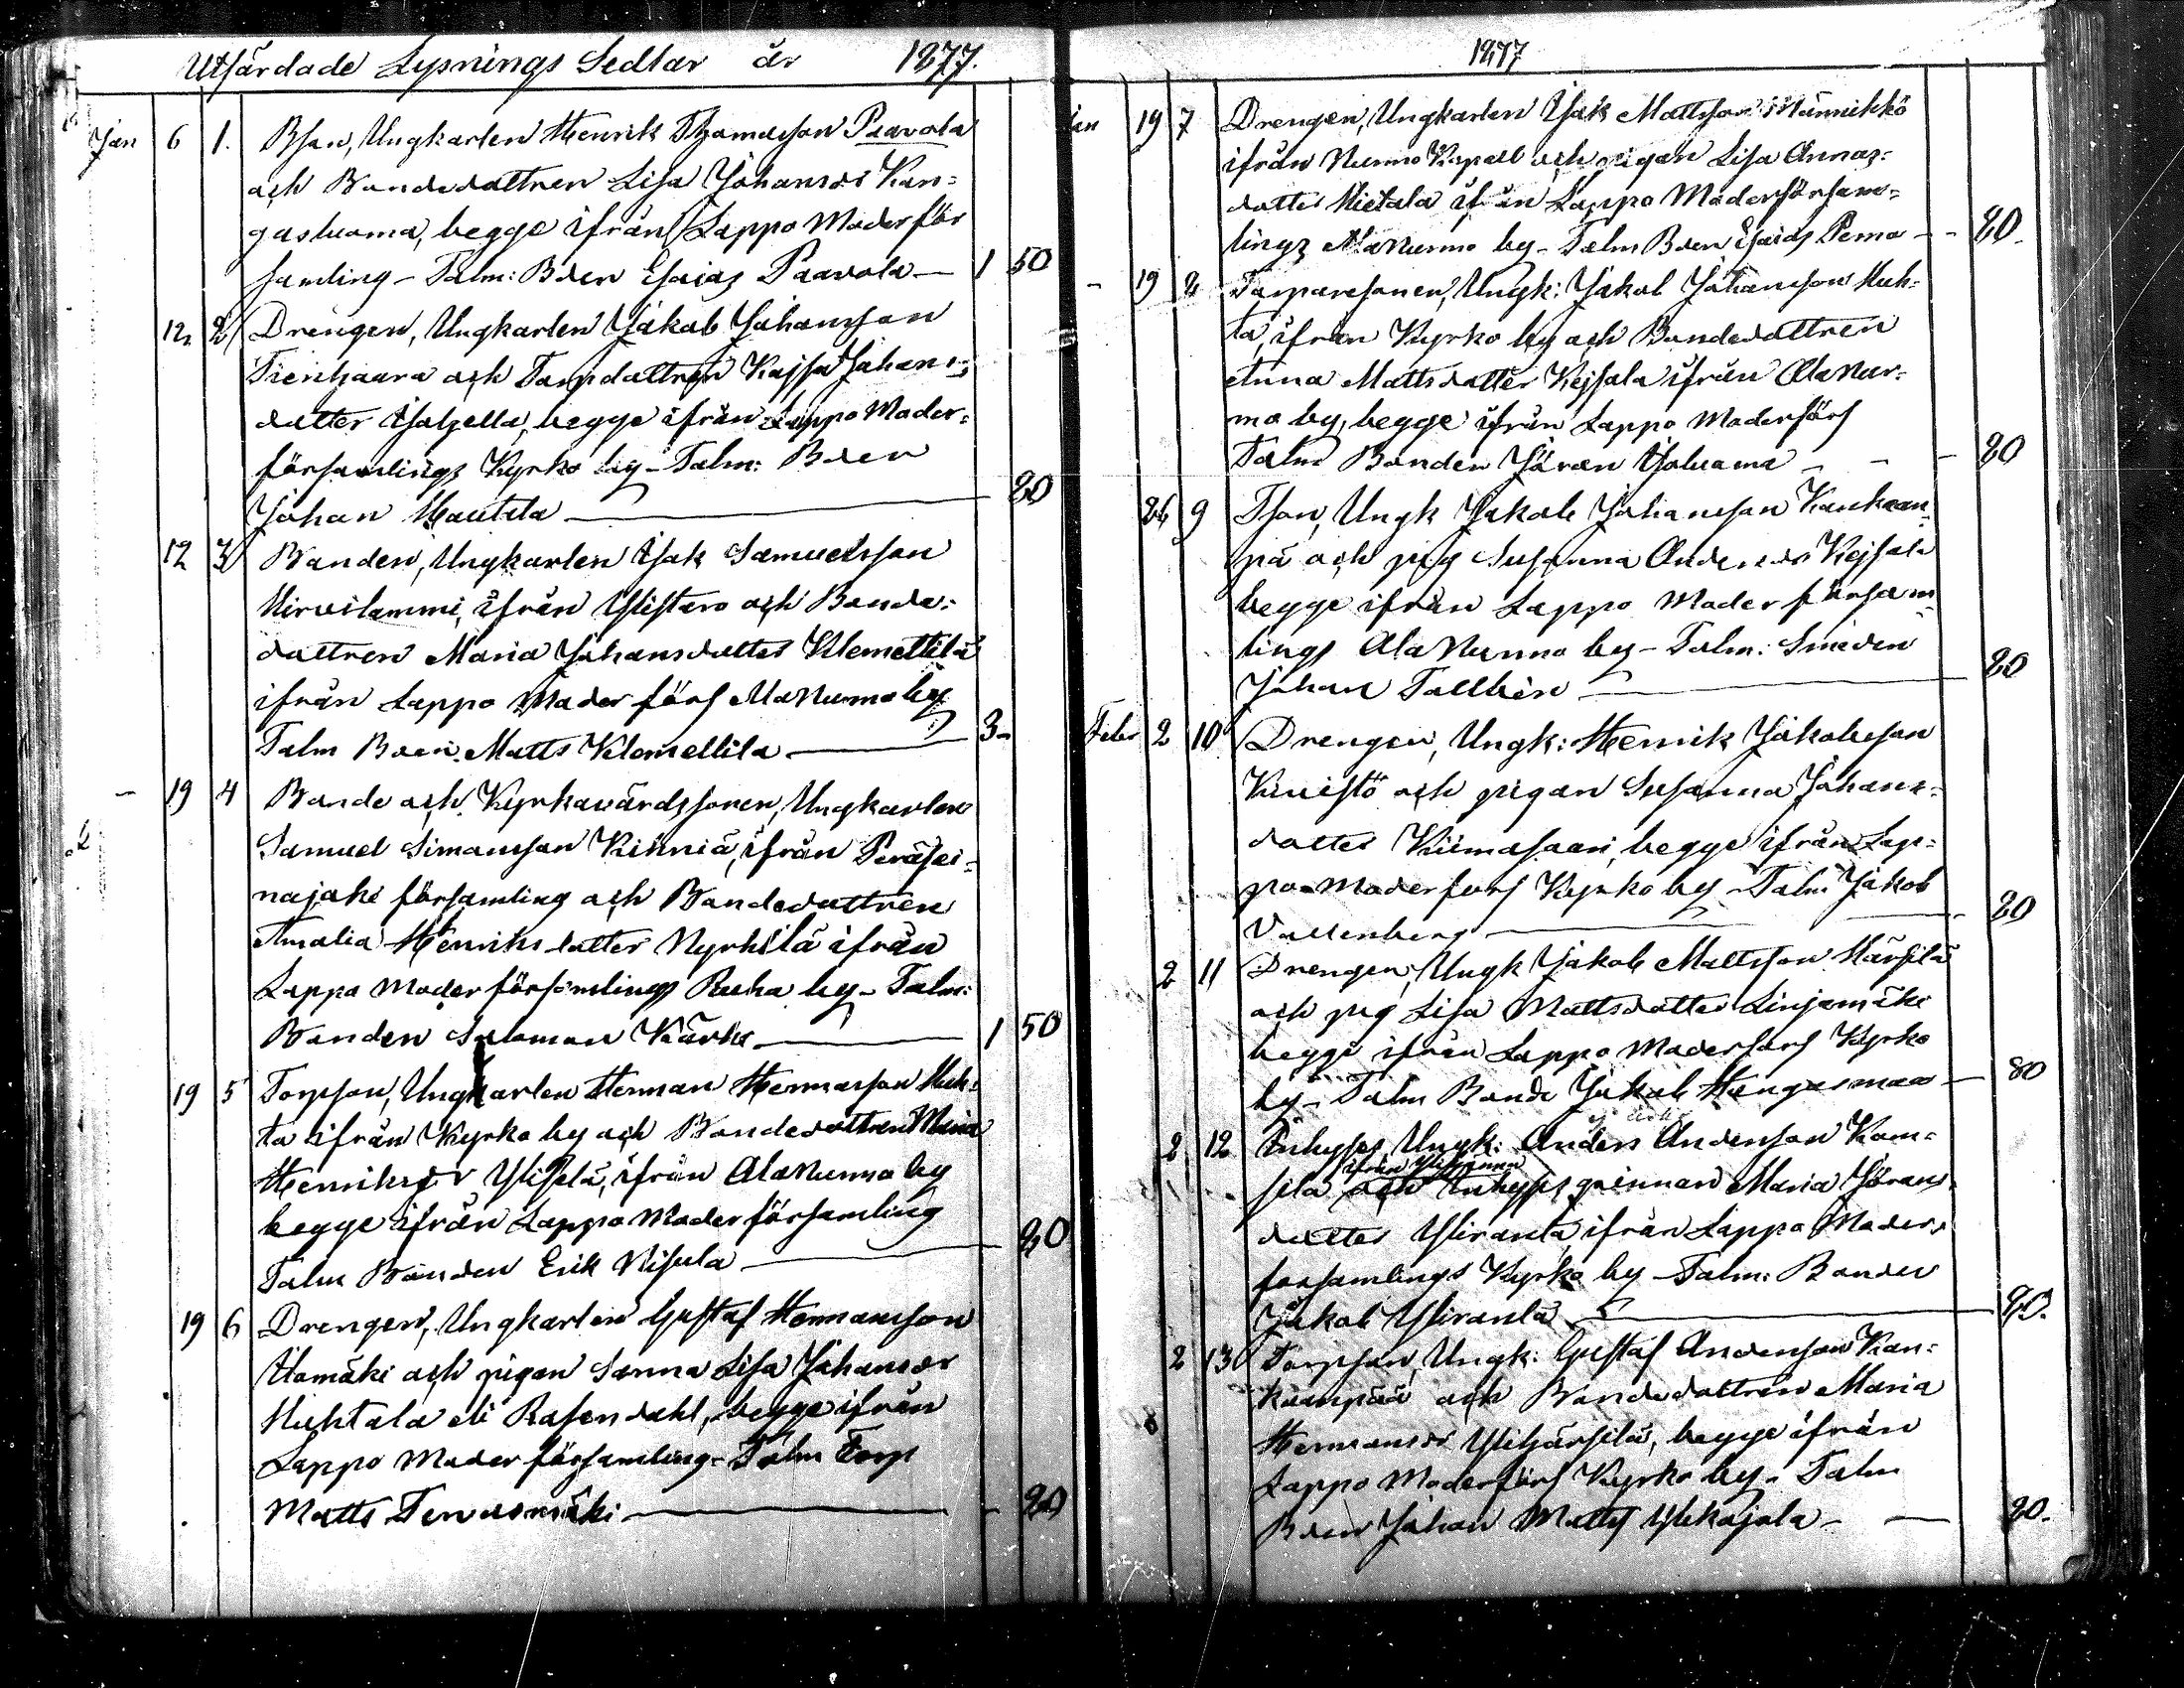 Utfärdade Lysnings Sedlar år 1877.
Jan 6 1. Bson, Ungkarlen Henrik Thomasson Paavola
och Bondedottren Lisa Johansdr Kan=
gasluoma, begge ifrån Lappo Moderför
samling – Talm: Bden Esaias Paavola — 1 50
12 2 Drengen, Ungkarlen Jakob Johansson
och Torpdottren Kajsa Johans=
dotter Isotella, begge ifrån Lappo Moder=
församlings Kyrko by – Talm: Bden
Johan Hautala — 80
12 3 Bonden, Ungkarlen Isak Samuelsson
Hirvilammi, ifrån Ylistaro och Bonde=
dottren Maria Johansdotter Klemettilä
ifrån Lappo Moder förs AlaNurmo by
Talm Bden Matts Klemettila — 3 –
– 19 4 Bonde och Kyrkovärdssonen, Ungkarlen
Samuel Simonsson Kihniä, ifrån Peräsei=
näjoki församling och Bondedottren
Amalia Henriksdotter Nyrhilä ifrån
Lappo Moder församlings Ruha by – Talm:
Bonden Salomon Kärki — 1 50
19 5 Torpson, Ungkarlen Herman Hermansson Huh=
ta ifrån Kyrko by och Bondedottren Maria
Henriksdr Ylisela, ifrån AlaNurmo by
begge ifrån Lappo Moder församling
Talm Bonden Erik Nisula — 80
19 6 Drengen, Ungkarlen Gustaf Hermansson
Ilomäki och pigan Sanna Lisa Johansdr
Huhtala eli Rosendahl, begge ifrån
Lappo Moder församling – Talm Torp
Matts Tervasmäki — 80
1877
Jan 19 7 Drengen, Ungkarlen Isak Mattsson Männikkö
ifrån Nurmo Kapell och pigan Lisa Annas=
dotter Hietala ifrån Lappo Moderförsam=
lings AlaNurmo by – Talm Bden Esaias Perno – – 80.
– 19 8 Torparesonen, Ungk: Jakob Johansson Huh=
ta, ifrån Kyrko by och Bondedottren
Anna Mattsdotter Kejsala ifrån AlaNur=
mo by, begge ifrån Lappo Moderförs
Talm Bonden Jöran Isoluoma – – – 80
26 9 Tson, Ungk Jakob Johansson Kankaan=
pä och pig Susanna Andersdr Kejsala
begge ifrån Lappo Moder församl
lings AlaNurmo by – Talm: Smeden
Johan Tallbin — 80
Febr 2 10 Drengen, Ungk: Henrik Jakobsson
Kivistö och pigan Susanna Johans=
dotter Kiimasaari, begge ifrån Lap=
po Moderförs Kyrko by – Talm Jakob
Vallenberg — 80
2 11 Drengen, Ungk Jakob Mattsson Härsilä
och pig Lisa Mattsdotter Linjamäki
begge ifrån Lappo Moderförs Kyrko
by – Talm Bonde Jakob Hangasmaa — 80
2 12 Inhyses Ungk: Anders Andersson Kam=
ifrån
sila och Inhyses qvinnan Maria Jörans=
dotter Yliranta, ifrån Lappo Moder
församlings Kyrko by – Talm: Bonden
Jakob Yliranta — 80.
2 13 Torpson, Ungk: Gustaf Andersson Kan=
kaanpää och Bondedottren Maria
Hermansdr Ylihärsilä, begge ifrån
Lappo Moderförs Kyrko by – Talm
Bden Johan Matts Ylikojola – — 80.